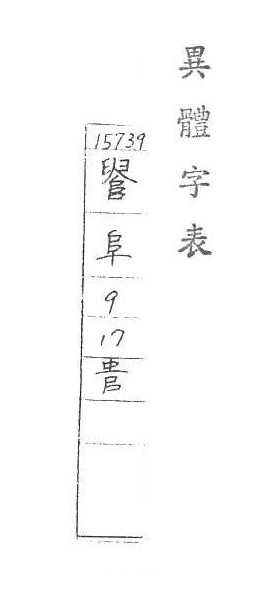 異體字表
15739
阜
9
17